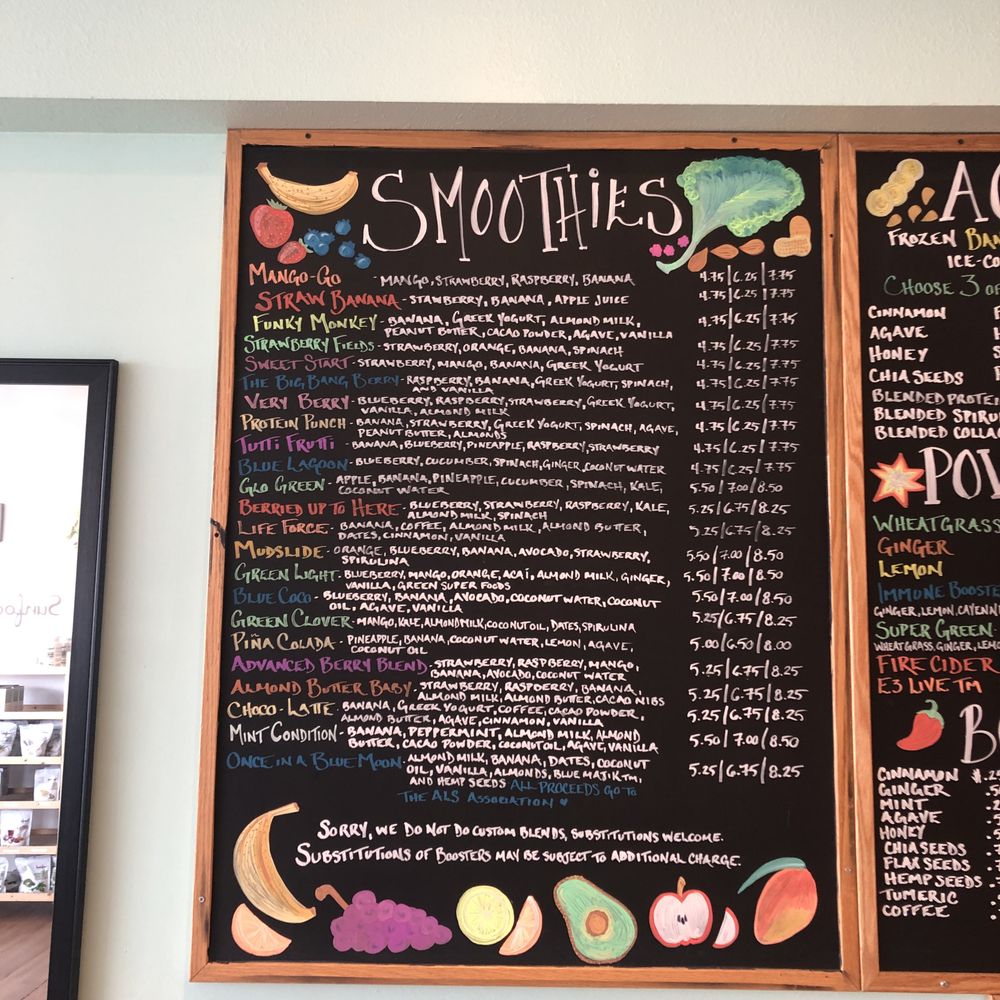 SMOOTHIES
MANGO-GO - MANGO, STRAWBERRY, RASPBERRY, BANANA 4.75/6.25/7.75
STRAW BANANA - STAWBERRY, BANANA, APPLE JUICE 4.75/6.25/7.75
FUNKY MONKEY - BANANA, GREEK YOGURT, ALMOND MILK, 4.75/6.25/7.75
PEANUT BUTTER, CACAO POWDER, AGAVE, VANILLA
STRAWBERRY FIELDS - STRAWBERRY, ORANGE, BANANA, SPINACH 4.75/6.25/7.75
SWEET START - STRAWBERRY, MANGO, BANANA, GREEK YOGURT 4.75/6.25/7.75
THE BIG BANG BERRY - RASPBERRY, BANANA, GREEK YOGURT, SPINACH, 4.75/6.25/7.75
AND VANILLA
VERY BERRY - BLUEBERRY, RASPBERRY, STRAWBERRY, GREEK YOGURT, 4.75/6.25/7.75
VANILLA, ALMOND MILK
PROTEIN PUNCH - BANANA, STRAWBERRY, GREEK YOGURT, SPINACH, AGAVE, 4.75/6.25/7.75
PEANUT BUTTER, ALMONDS
TUTTI FRUTTI - BANANA, BLUEBERRY, PINEAPPLE, RASPBERRY, STRAWBERRY 4.75/6.25/7.75
BLUE LAGOON - BLUEBERRY, CUCUMBER, SPINACH, GINGER, COCONUT WATER 4.75/6.25/7.75
GLO GREEN - APPLE, BANANA, PINEAPPLE, CUCUMBER, SPINACH, KALE, 5.50/7.00/8.50
COCONUT WATER
BERRIED UP TO HERE - BLUEBERRY, STRAWBERRY, RASPBERRY, KALE, 5.25/6.75/8.25
ALMOND MILK, SPINACH
LIFE FORCE - BANANA, COFFEE, ALMOND MILK, ALMOND BUTTER, 5.25/6.75/8.25
DATES, CINNAMON, VANILLA
MUDSLIDE - ORANGE, BLUEBERRY, BANANA, AVOCADO, STRAWBERRY, 5.50/7.00/8.50
SPIRULINA
GREEN LIGHT - BLUEBERRY, MANGO, ORANGE, ACAÍ, ALMOND MILK, GINGER, 5.50/7.00/8.50
VANILLA, GREEN SUPER FOODS
BLUE COCO - BLUEBERRY, BANANA, AVOCADO, COCONUT WATER, COCONUT 5.50/7.00/8.50
OIL, AGAVE, VANILLA
GREEN CLOVER - MANGO, KALE, ALMOND MILK, COCONUT OIL, DATES, SPIRULINA 5.25/6.75/8.25
PIÑA COLADA - PINEAPPLE, BANANA, COCONUT WATER, LEMON, AGAVE, 5.00/6.50/8.00
COCONUT OIL
ADVANCED BERRY BLEND - STRAWBERRY, RASPBERRY, MANGO, 5.25/6.75/8.25
BANANA, AVOCADO, COCONUT WATER
ALMOND BUTTER BABY - STRAWBERRY, RASPBERRY, BANANA, 5.25/6.75/8.25
ALMOND MILK, ALMOND BUTTER, CACAO NIBS
CHOCO-LATTE - BANANA, GREEK YOGURT, COFFEE, CACAO POWDER, 5.25/6.75/8.25
ALMOND BUTTER, AGAVE, CINNAMON, VANILLA
MINT CONDITION - BANANA, PEPPERMINT, ALMOND MILK, ALMOND 5.50/7.00/8.50
BUTTER, CACAO POWDER, COCONUT OIL, AGAVE, VANILLA
ONCE IN A BLUE MOON - ALMOND MILK, BANANA, DATES, COCONUT 5.25/6.75/8.25
OIL, VANILLA, ALMONDS, BLUE MAJIK TM,
AND HEMP SEEDS ALL PROCEEDS GO TO
THE ALS ASSOCIATION ♥
SORRY, WE DO NOT DO CUSTOM BLENDS, SUBSTITUTIONS WELCOME.
SUBSTITUTIONS OF BOOSTERS MAY BE SUBJECT TO ADDITIONAL CHARGE.
FROZEN BAN
ICE-CO
CHOOSE 3 OF
CINNAMON
AGAVE
HONEY
CHIA SEEDS
BLENDED PROTEI
BLENDED SPIRU
BLENDED COLLA
POW
WHEATGRASS
GINGER
LEMON
IMMUNE BOOSTE
GINGER, LEMON, CAYENN
SUPER GREEN
WHEATGRASS, GINGER, LEMO
FIRE CIDER
E3 LIVE TM
B
CINNAMON $.25
GINGER
MINT
AGAVE
HONEY
CHIA SEEDS
FLAX SEEDS
HEMP SEEDS
TUMERIC
COFFEE